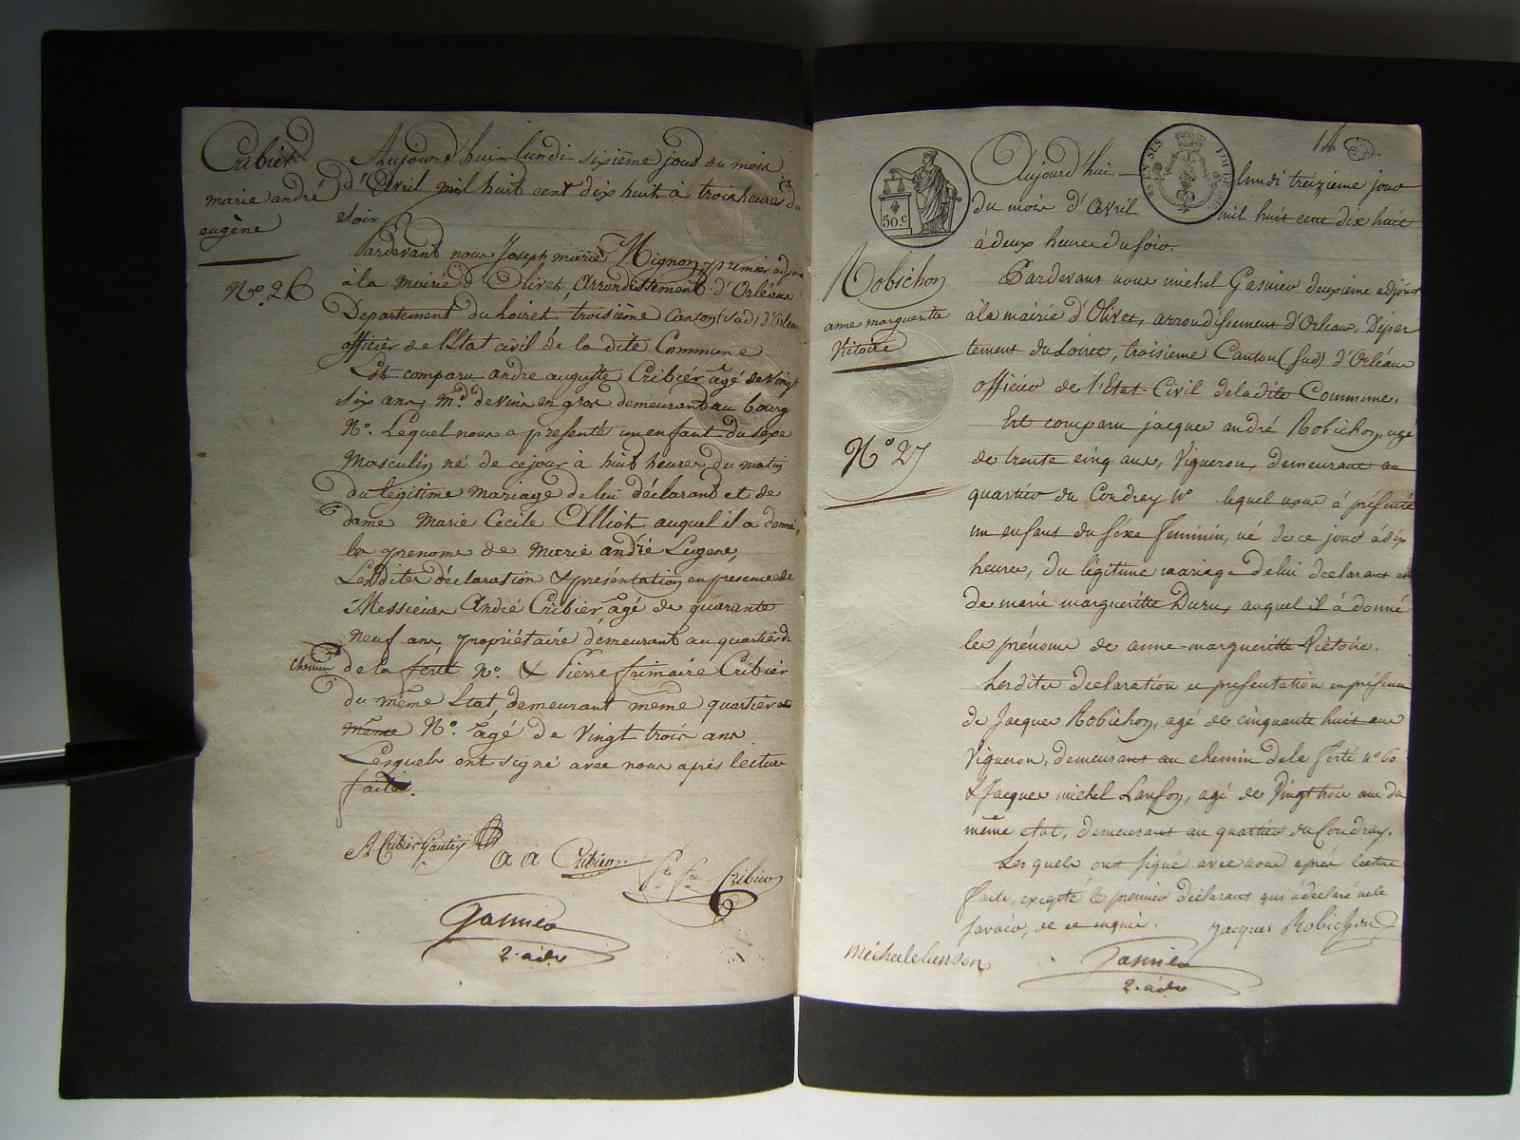 Cribier
marie andré
eugène
N.º 26
Aujourd'hui lundi sixième jour du mois
d'Avril mil huit cent dix huit à trois heures du
soir
Pardevant nous Joseph marie Mignon premier adjoint
à la mairie d'Olivet, Arrondissement d'Orléans
Departement du Loiret, troisième Canton (sud) d'Orléans
officier de l'Etat civil de la dite Commune
Est comparu andré auguste Cribier agé de vingt
six ans, M.d de vin en gros demeurant au bourg
N.º Lequel nous a presenté un enfant du sexe
Masculin né de cejour à huit heures du matin
du légitime mariage de lui déclarant et de
dame Marie Cecile Alliot auquel il a donné
les prenoms de Marie andré Eugene,
Lesdites déclaration & présentation en presence de
Messieurs André Cribier agé de quarante
neuf ans, propriétaire demeurant au quartier de
chemin
de la ferté N.º & Pierre frimaire Cribier
du même Etat, demeurant même quartier
même N.º agé de Vingt trois ans
Lesquels ont signé avec nous après lecture
faite.
A A Cribier
Cribier
Gasnier
2. adj
14
50.C
Robichon
anne marguerite
Victoire
N.º 27
Aujourd'hui lundi treizieme jour
du mois d'Avril mil huit cent dix huit
à deux heures du soir.
Pardevant nous michel Gasnier deuxieme adjoint
à la mairie d'Olivet, arrondissement d'Orleans, Dépar
tement du Loiret, troisieme Canton (sud) d'Orléans
officier de l'Etat-Civil de ladite Commune.
Est comparu jacques andré Robichon, agé
de trente cinq ans, Vigneron, demeurant au
quartier du Coudray N.º lequel nous à présenté
un enfant du séxe féminin, né de ce jour à dix
heures, du légitime mariage de lui declarant et
de marie margueritte Duru, auquel il à donné
les prénoms de anne margueritte Victoire.
Lesdites declaration et presentation en présence
de Jacques Robichon, agé de cinquante huit ans
Vigneron, demeurant au chemin de la Ferté n.º 60
& Jacques michel Lanson, agé de Vingt trois ans du
même etat, demeurant au quartier du Coudray.
Lesquels ont signé avec nous après lecture
faite, excepté le premier déclarant qui à declaré ne le
savoir, de ce enquis. jacques Robichon
Michel Lanson
Gasnier
2. adj